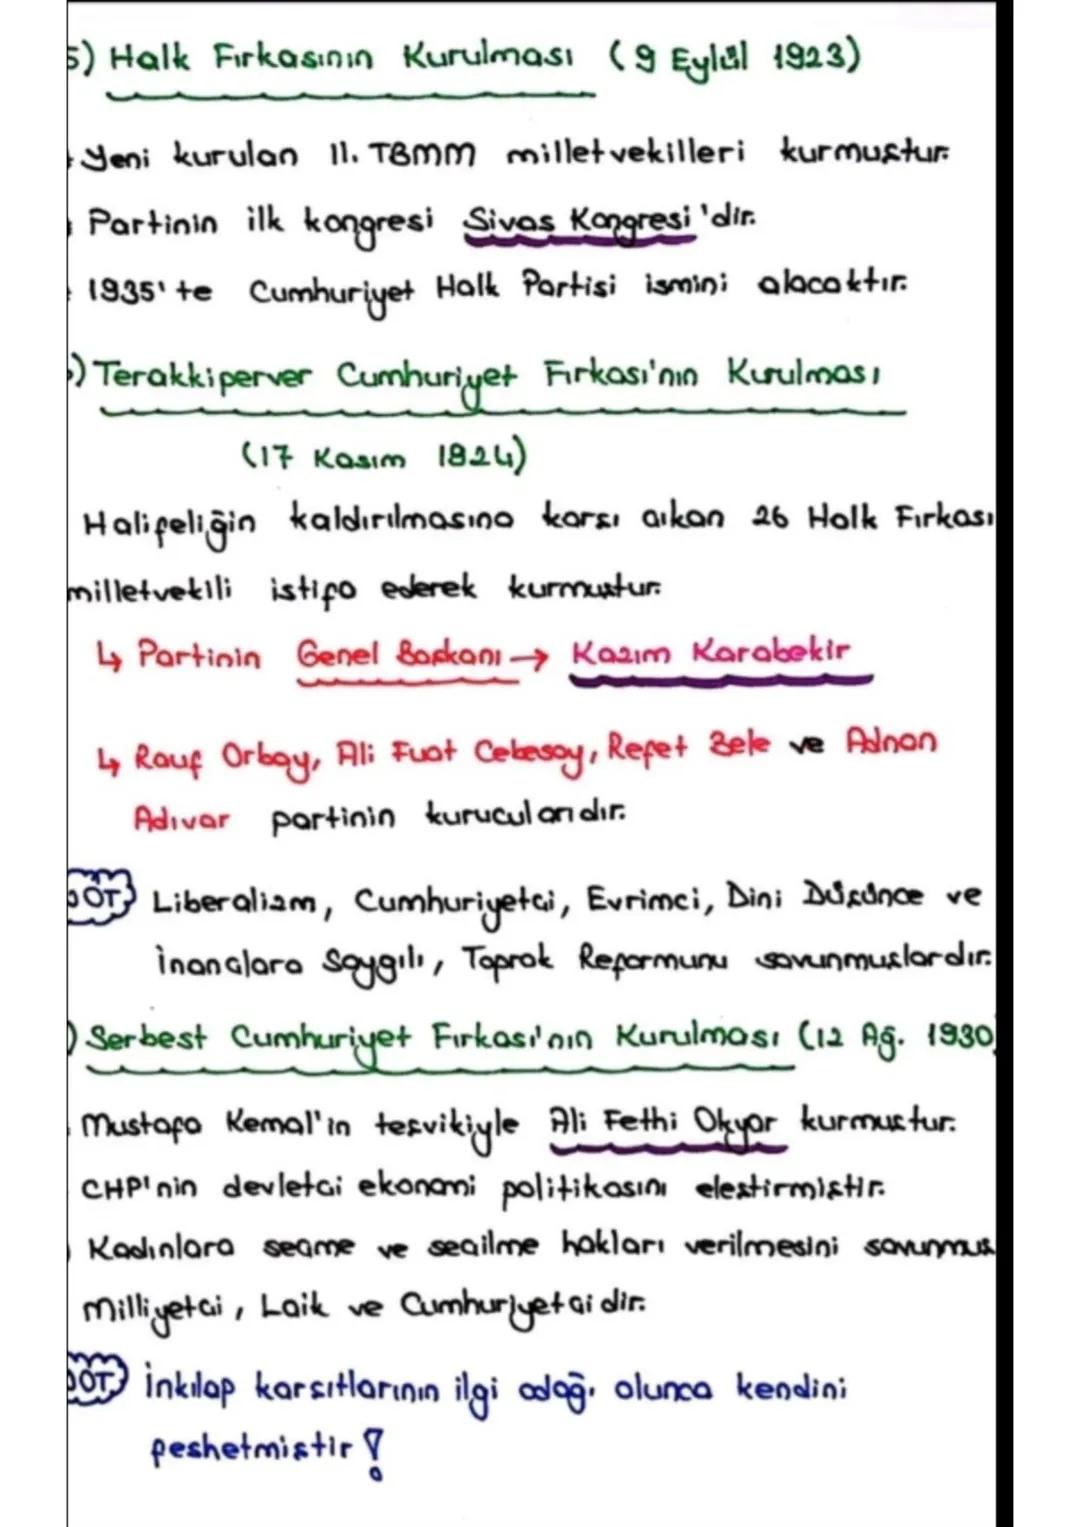 5) Halk Fırkasının Kurulması (9 Eylül 1923)
Yeni kurulan II. TBMM milletvekilleri kurmuştur.
Partinin ilk kongresi Sivas Kongresi'dir.
1935'te Cumhuriyet Halk Partisi ismini alacaktır.
) Terakkiperver Cumhuriyet Fırkası'nın Kurulması
(17 Kasım 1924)
Halifeliğin kaldırılmasına karşı çıkan 26 Halk Fırkası
milletvekili istifa ederek kurmuştur.
↳ Partinin Genel Başkanı → Kazım Karabekir
↳ Rauf Orbay, Ali Fuat Cebesoy, Refet Bele ve Adnan
Adıvar partinin kurucularıdır.
DÖT Liberalizm, Cumhuriyetçi, Evrimci, Dini Düşünce ve
İnançlara Saygılı, Toprak Reformunu savunmuşlardır.
) Serbest Cumhuriyet Fırkası'nın Kurulması (12 Ağ. 1930)
Mustafa Kemal'in teşvikiyle Ali Fethi Okyar kurmuştur.
CHP'nin devletçi ekonomi politikasını eleştirmiştir.
Kadınlara seçme ve seçilme hakları verilmesini savunmuş
Milliyetçi, Laik ve Cumhuriyetçidir.
DÖT İnkılap karşıtlarının ilgi odağı olunca kendini
feshetmiştir!